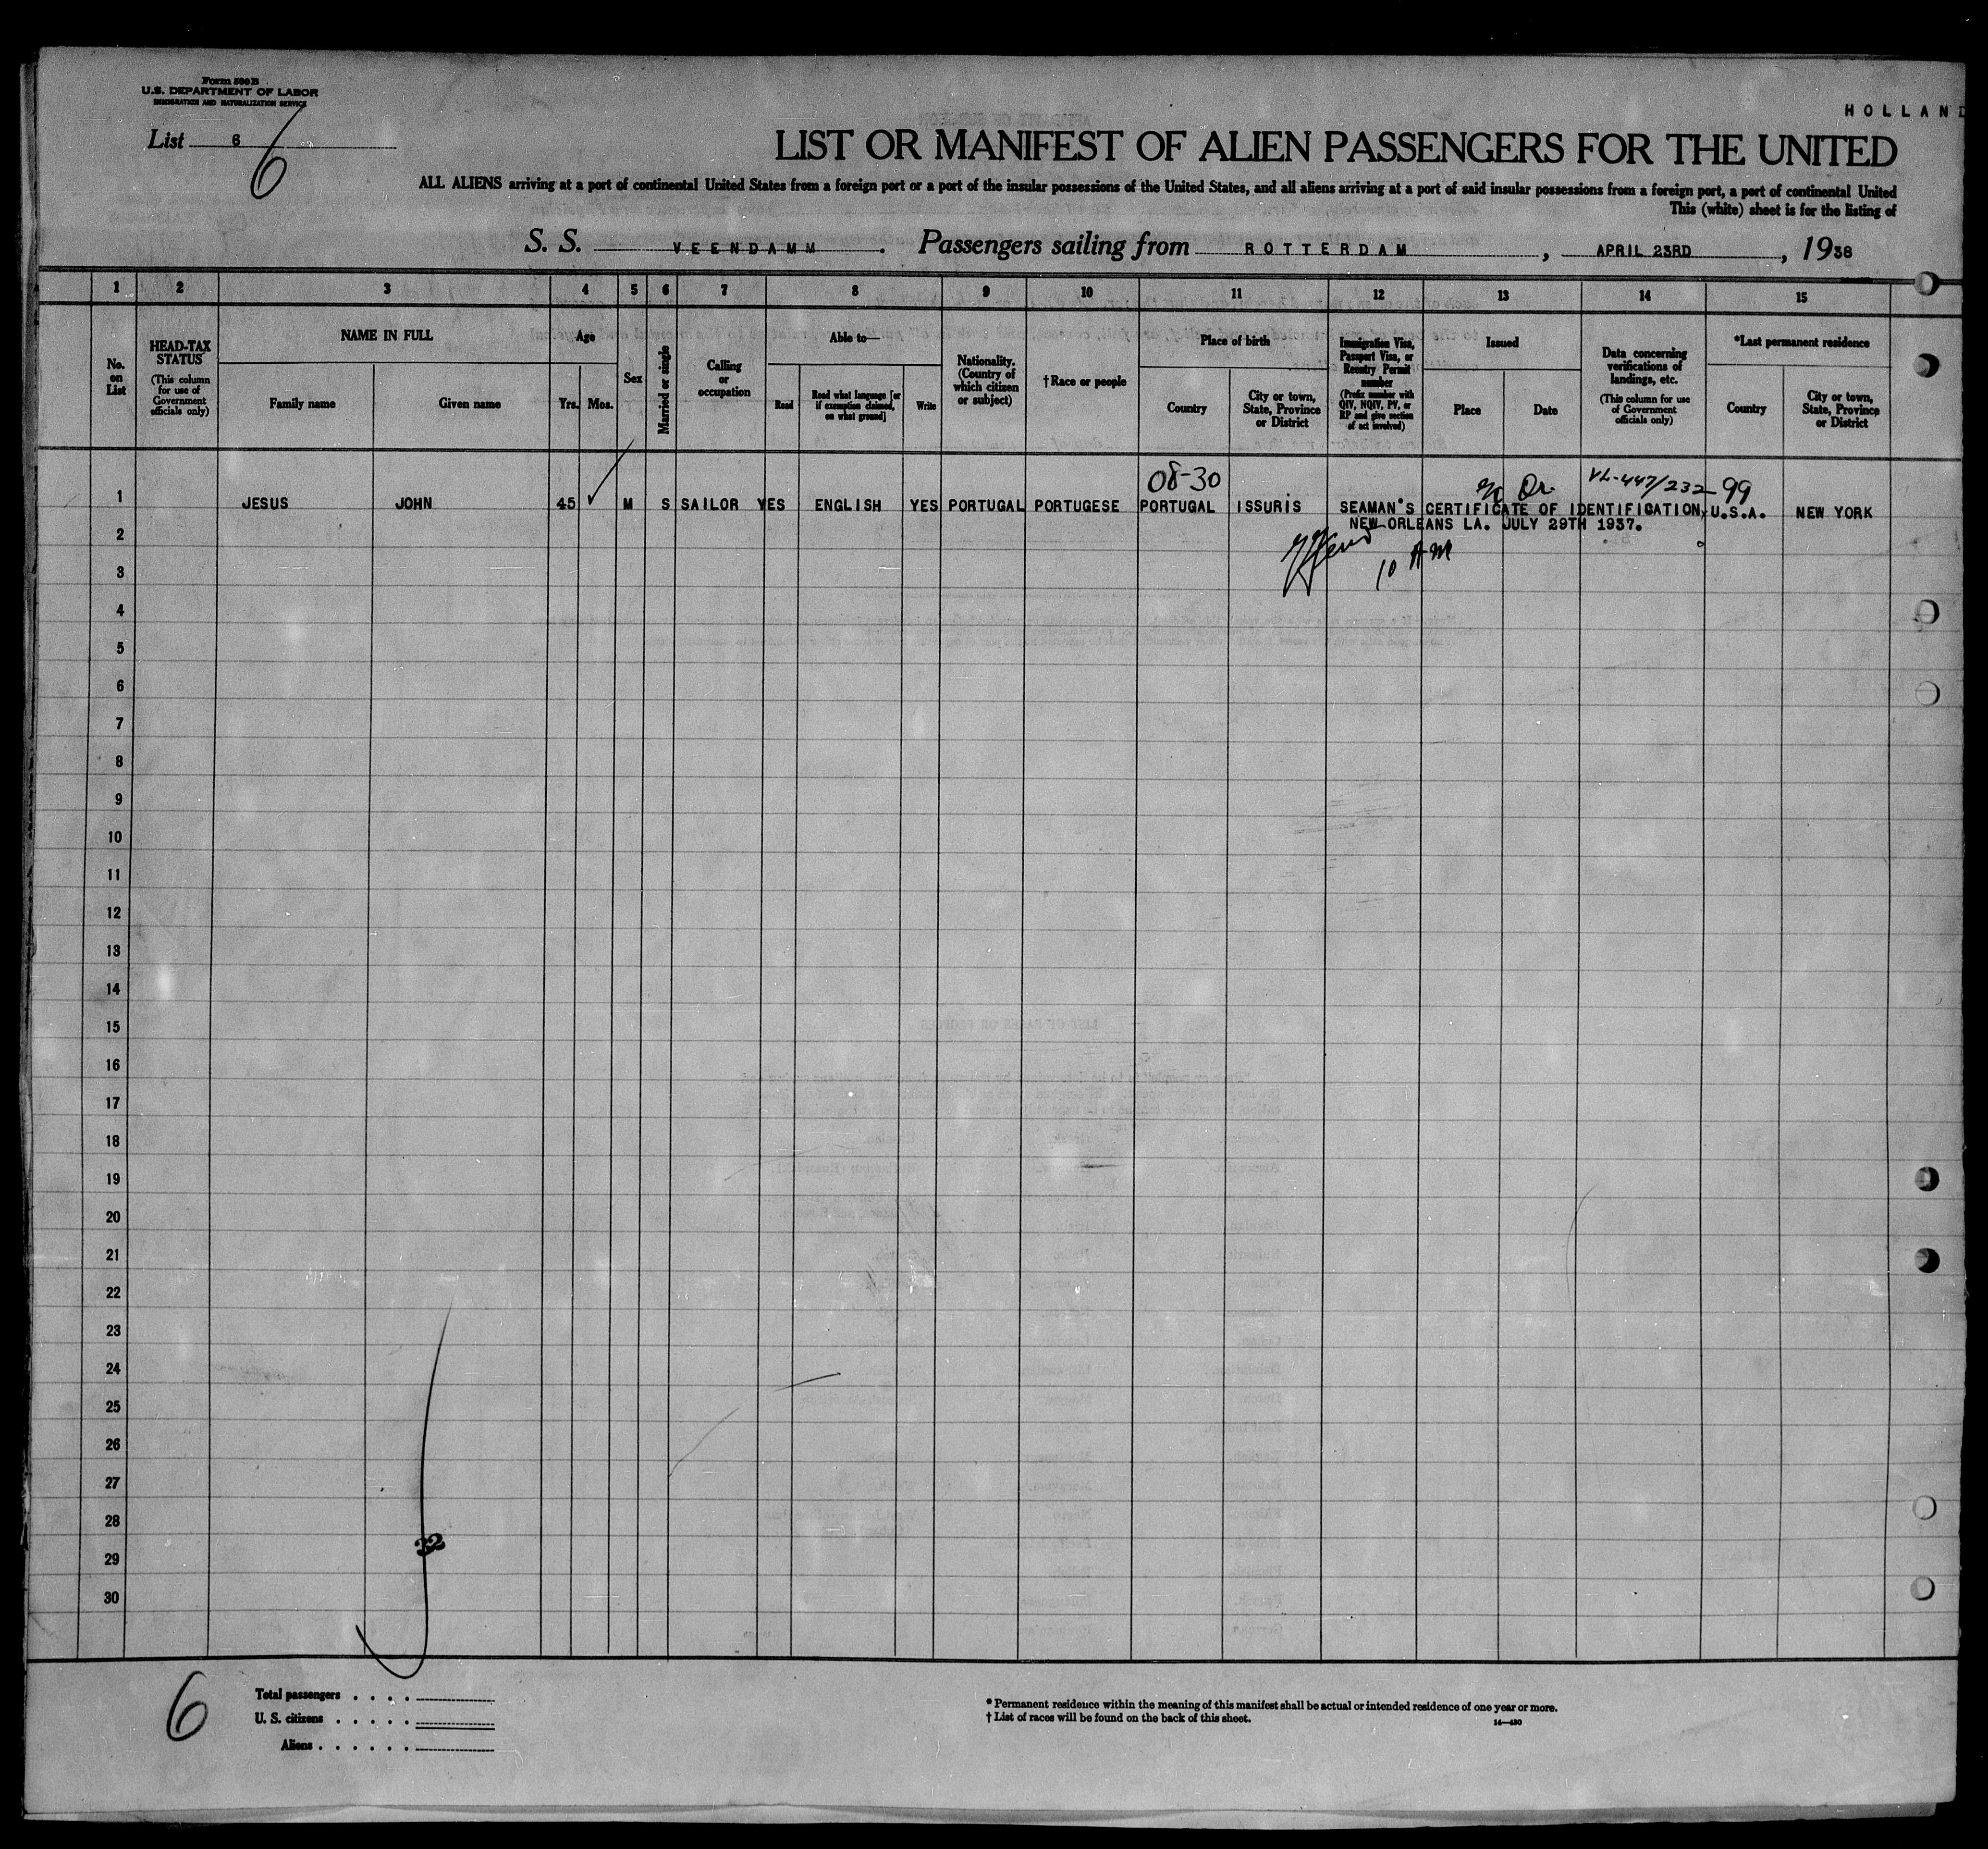 Form 500B
U.S. DEPARTMENT OF LABOR
IMMIGRATION AND NATURALIZATION SERVICE
HOLLAND
List 6
6
LIST OR MANIFEST OF ALIEN PASSENGERS FOR THE UNITED
ALL ALIENS arriving at a port of continental United States from a foreign port or a port of the insular possessions of the United States, and all aliens arriving at a port of said insular possessions from a foreign port, a port of continental United
This (white) sheet is for the listing of
S. S. VEENDAMM. Passengers sailing from ROTTERDAM, APRIL 23RD, 1938
1 2 3 4 5 6 7 8 9 10 11 12 13 14 15
No. on List
HEAD-TAX STATUS
(This column for use of Government officials only)
NAME IN FULL
Family name Given name
Age
Yrs. Mos.
Sex
Married or single
Calling or occupation
Able to—
Read
Read what language [or if exemption claimed, on what ground]
Write
Nationality. (Country of which citizen or subject)
† Race or people
Place of birth
Country
City or town, State, Province or District
Immigration Visa, Passport Visa, or Reentry Permit number
(Prefix number with QIV, NQIV, PV, or RP and give section of act involved)
Issued
Place Date
Data concerning verifications of landings, etc.
(This column for use of Government officials only)
*Last permanent residence
Country
City or town, State, Province or District
08-30
VL-447/232 99
1 JESUS JOHN 45 M S SAILOR YES ENGLISH YES PORTUGAL PORTUGESE PORTUGAL ISSURIS SEAMAN'S CERTIFICATE OF IDENTIFICATION, U.S.A. NEW YORK
NEW-ORLEANS LA. JULY 29TH 1937.
2
10 AM
3
4
5
6
7
8
9
10
11
12
13
14
15
16
17
18
19
20
21
22
23
24
25
26
27
28
32
29
30
6
Total passengers . . . .
U. S. citizens . . . . .
Aliens . . . . . .
* Permanent residence within the meaning of this manifest shall be actual or intended residence of one year or more.
† List of races will be found on the back of this sheet.
14—430